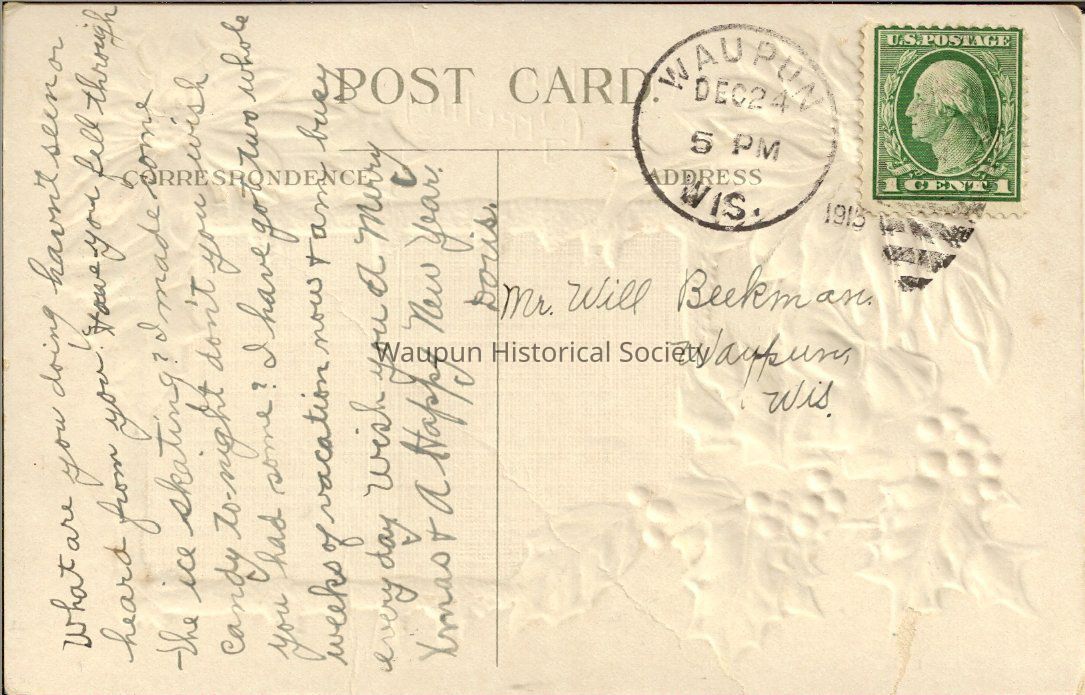 POST CARD.
CORRESPONDENCE
ADDRESS
WAUPUN
DEC 24
5 PM
WIS.
1915
U.S. POSTAGE
1 CENT 1
What are you doing havn't seen or
heard from you. Have you fell through
the ice skating? I made some
candy to-night don't you wish
you had some? I have got two whole
weeks of vacation now & am busy
every day Wish you a Merry
Xmas & A Happy New Year.
Doris.
Mr. Will Beekman.
Waupun,
Wis.
Waupun Historical Society